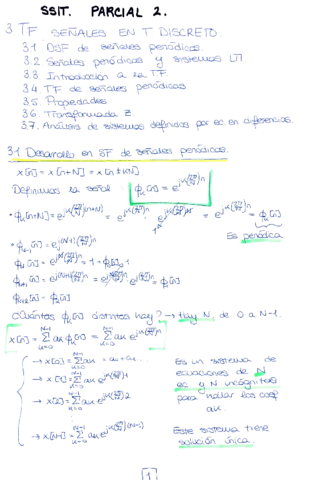 SSIT. PARCIAL 2.
3 TF SEÑALES EN T DISCRETO.
3.1 DSF de señales periódicas.
3.2 Señales periódicas y sistemas LTI
3.3 Introducción a la TF
3.4 TF de señales periódicas
3.5 Propiedades
3.6 Transformada Z
3.7 Análisis de sistemas definidos por ec. en diferencias.
3.1. Desarrollo en SF de señales periódicas.
x[n] = x[n+N] = x[n±kN]
Definimos la señal: ϕk[n] = e^{jk(2π/N)n}
• ϕk[n+N] = e^{jk(2π/N)(n+N)} = e^{jk(2π/N)n} · e^{jk(2π/N)N} = e^{jk(2π/N)n} = ϕk[n]
Es periódica
¿Cuántos ϕk[n] distintas hay? → Hay N, de 0 a N-1.
x[n] = Σ_{k=0}^{N-1} ak ϕk[n] = Σ_{k=0}^{N-1} ak e^{jk(2π/N)n}
→ x[0] = Σ_{k=0}^{N-1} ak = a0 + a1 ...
→ x[1] = Σ_{k=0}^{N-1} ak e^{jk(2π/N)1}
→ x[2] = Σ_{k=0}^{N-1} ak e^{jk(2π/N)2}
→ x[N-1] = Σ_{k=0}^{N-1} ak e^{jk(2π/N)(N-1)}
Es un sistema de
ecuaciones de N
ec y N incógnitas
para hallar los coef
ak.
Este sistema tiene
solución única.
1